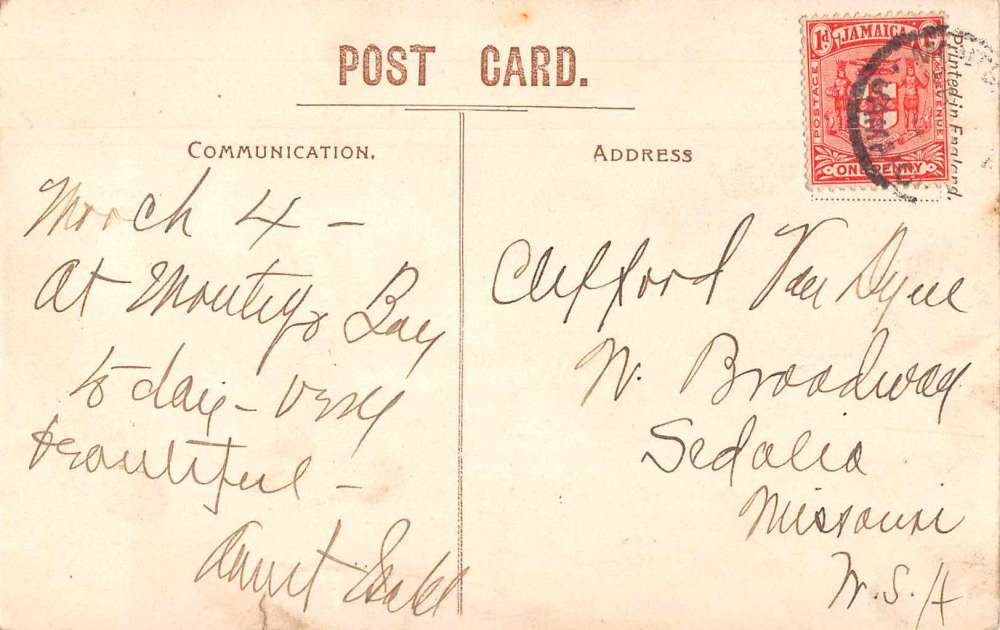 POST CARD.
COMMUNICATION.
ADDRESS
1d JAMAICA
POSTAGE
REVENUE
ONE PENNY
Printed in England.
March 4 -
At Montego Bay
to day - very
beautiful -
Aunt
Clifford Van Dyne
W. Broadway
Sedalia
Missouri
U.S.A